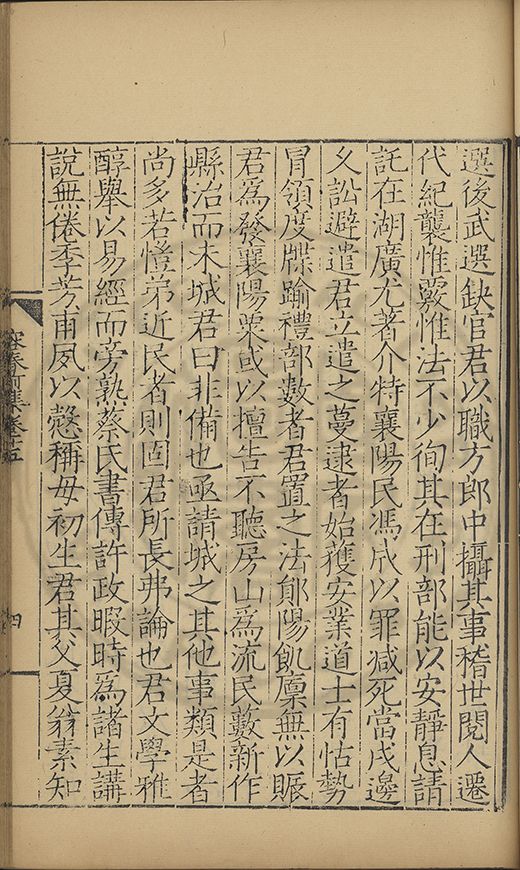 選後武選缺官君以職方郎中攝其事稽世閱人遷
代紀襲惟覈惟法不少徇其在刑部能以安靜息請
託在湖廣尤著介特襄陽民馮成以罪減死當戍邊
乂訟避遣君立遣之蔓逮者始獲安業道士有怙勢
冒領度牒踰禮部數者君置之法鄖陽飢廩無以賑
君爲發襄陽粟或以擅告不聽房山爲流民藪新作
縣治而未城君曰非備也亟請城之其他事類是者
尚多若愷弟近民者則固君所長弗論也君文學雅
醇舉以易經而旁熟蔡氏書傳許政暇時爲諸生講
說無倦季芳甫夙以愨稱毋初生君其父夏翁素知
容春前集卷十五
四